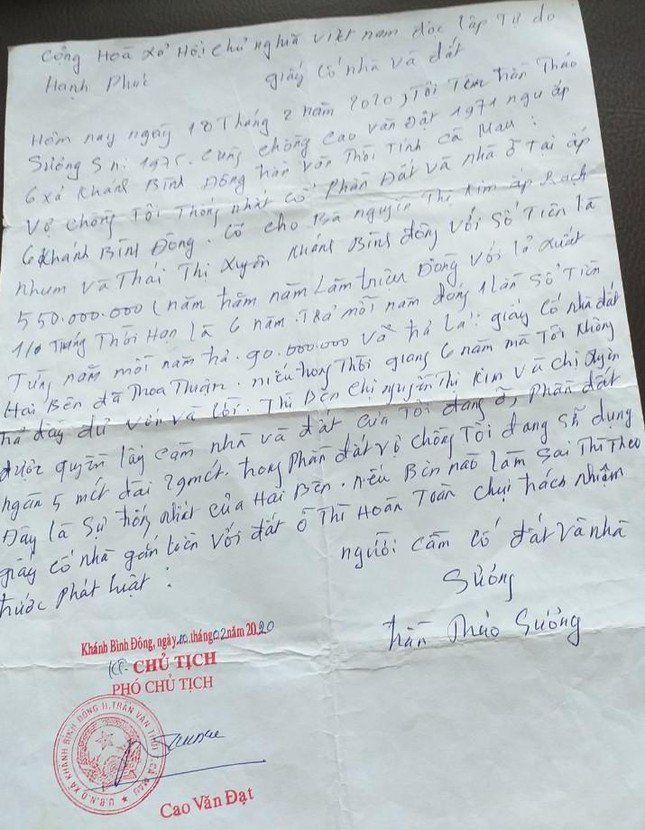 Cộng Hoà xả Hội chủ nghĩa Việt nam độc lập Tự do
Hạnh Phúc giấy cố nhà và đất
Hôm nay ngày 18 Tháng 2 năm 2020, Tôi Tên Trần Thảo
Sương Sn: 1975. cùng chồng Cao Văn Đát 1971 ngụ ấp
6 xả Khánh Bình Đông Trần Văn Thời Tỉnh Cà Mau:
Vợ chồng Tôi Thống nhất cố phần Đất và nhà ở Tại ấp
6 Khánh Bình Đông. Cố cho Bà nguyễn Thị Kim ấp Rạch
nhum và Thái Thị Xuyên Khánh Bình đông với Số Tiền là
550.000.000 (năm trăm năm Lăm triệu Đồng với lả xuất
1/0 Tháng Thời Hạn là 6 năm. Trả mỗi năm đóng 1 lần Số Tiền
Từng năm mỗi năm trả. 90.000.000 và trả lại: giấy cố nhà đất
Hai Bên đã Thoa Thuận. niếu trong Thời giang 6 năm mà Tôi không
trả đầy đủ vốn và Lời. Thì Đến chị nguyễn Thị Kim và chị
được quyền lấy căm nhà và đất của Tôi đang ở, phần đất
ngăn 5 mét dài 29 mét. trong phần đất vợ chồng Tôi đang Sử dụng
Đây là Sự thống nhất của Hai Bên. nếu Bên nào làm Sai Thì Theo
giấy cố nhà gắn liền với đất ở Thì Hoàn Toàn chịu trách nhiệm
trước phát luật:
người cầm cố đất và nhà
Sương
Trần Thảo Sương
Khánh Bình Đông, ngày 20 tháng 02 năm 2020
KT. CHỦ TỊCH
PHÓ CHỦ TỊCH
U.B.N.D XÃ KHÁNH BÌNH ĐÔNG H.TRẦN VĂN THỜI T.CÀ MAU
Cao Văn Đạt